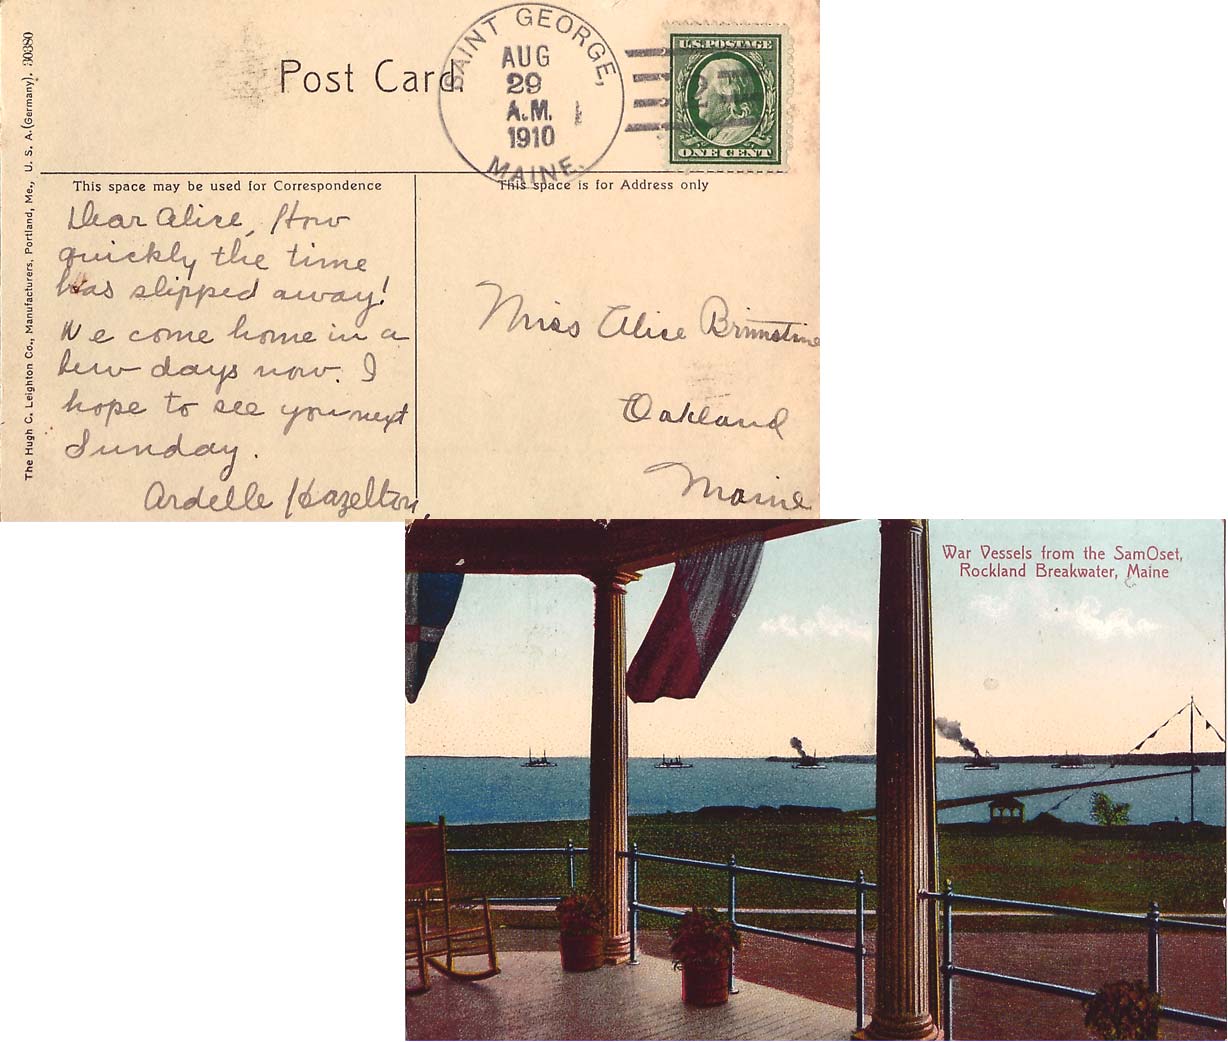 The Hugh C. Leighton Co., Manufacturers, Portland, Me., U. S. A. (Germany). 30380
Post Card.
SAINT GEORGE,
AUG
29
A.M.
1910
MAINE.
U.S. POSTAGE
ONE CENT
This space may be used for Correspondence
This space is for Address only
Dear Alice, How
quickly the time
has slipped away!
We come home in a
few days now. I
hope to see you next
Sunday.
Ardelle Hazelton,
Miss Alice Brimstine
Oakland
Maine
War Vessels from the SamOset,
Rockland Breakwater, Maine